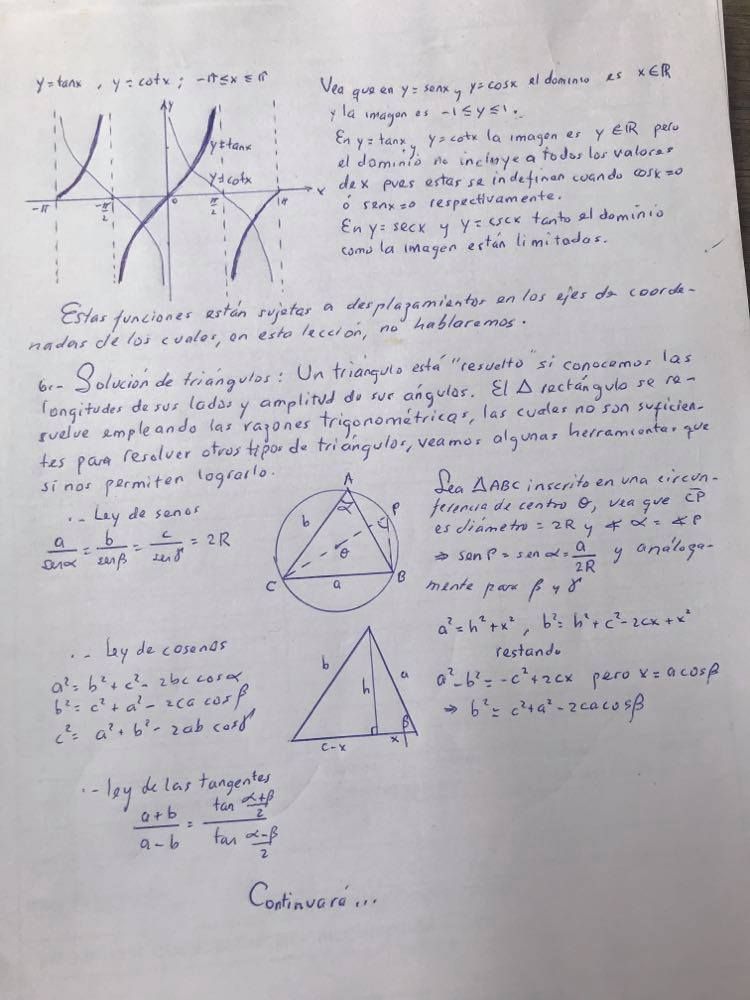 y=tanx , y=cotx ; -π≤x≤π
y
y=tanx
y=cotx
x
-π
-π/2
0
π/2
π
Vea que en y=senx y y=cosx el dominio es x∈ℝ
y la imagen es -1≤y≤1.
En y=tanx y y=cotx la imagen es y∈ℝ pero
el dominio no incluye a todos los valores
de x pues estas se indefinen cuando cosx=0
ó senx=0 respectivamente.
En y=secx y y=cscx tanto el dominio
como la imagen están limitadas.
Estas funciones están sujetas a desplazamientos en los ejes de coorde-
nadas de los cuales, en esta lección, no hablaremos.
6.- Solución de triángulos: Un triángulo está "resuelto" si conocemos las
longitudes de sus lados y amplitud de sus ángulos. El Δ rectángulo se re-
suelve empleando las razones trigonométricas, las cuales no son suficien-
tes para resolver otros tipos de triángulos, veamos algunas herramientas que
sí nos permiten lograrlo.
.- Ley de senos
a/senα = b/senβ = c/senγ = 2R
A
α
b
P
c
θ
C
a
B
Sea ΔABC inscrito en una circun-
ferencia de centro θ, vea que CP
es diámetro = 2R y ∢α = ∢P
⇒ senP = senα = a/2R y análoga-
mente para β y γ
.- Ley de cosenos
a² = b² + c² - 2bc cosα
b² = c² + a² - 2ca cosβ
c² = a² + b² - 2ab cosγ
b
a
h
β
c-x
x
a² = h² + x² , b² = h² + c² - 2cx + x²
restando
a² - b² = -c² + 2cx pero x = a cosβ
⇒ b² = c² + a² - 2ca cosβ
.- ley de las tangentes
(a+b)/(a-b) = tan((α+β)/2)/tan((α-β)/2)
Continuará...